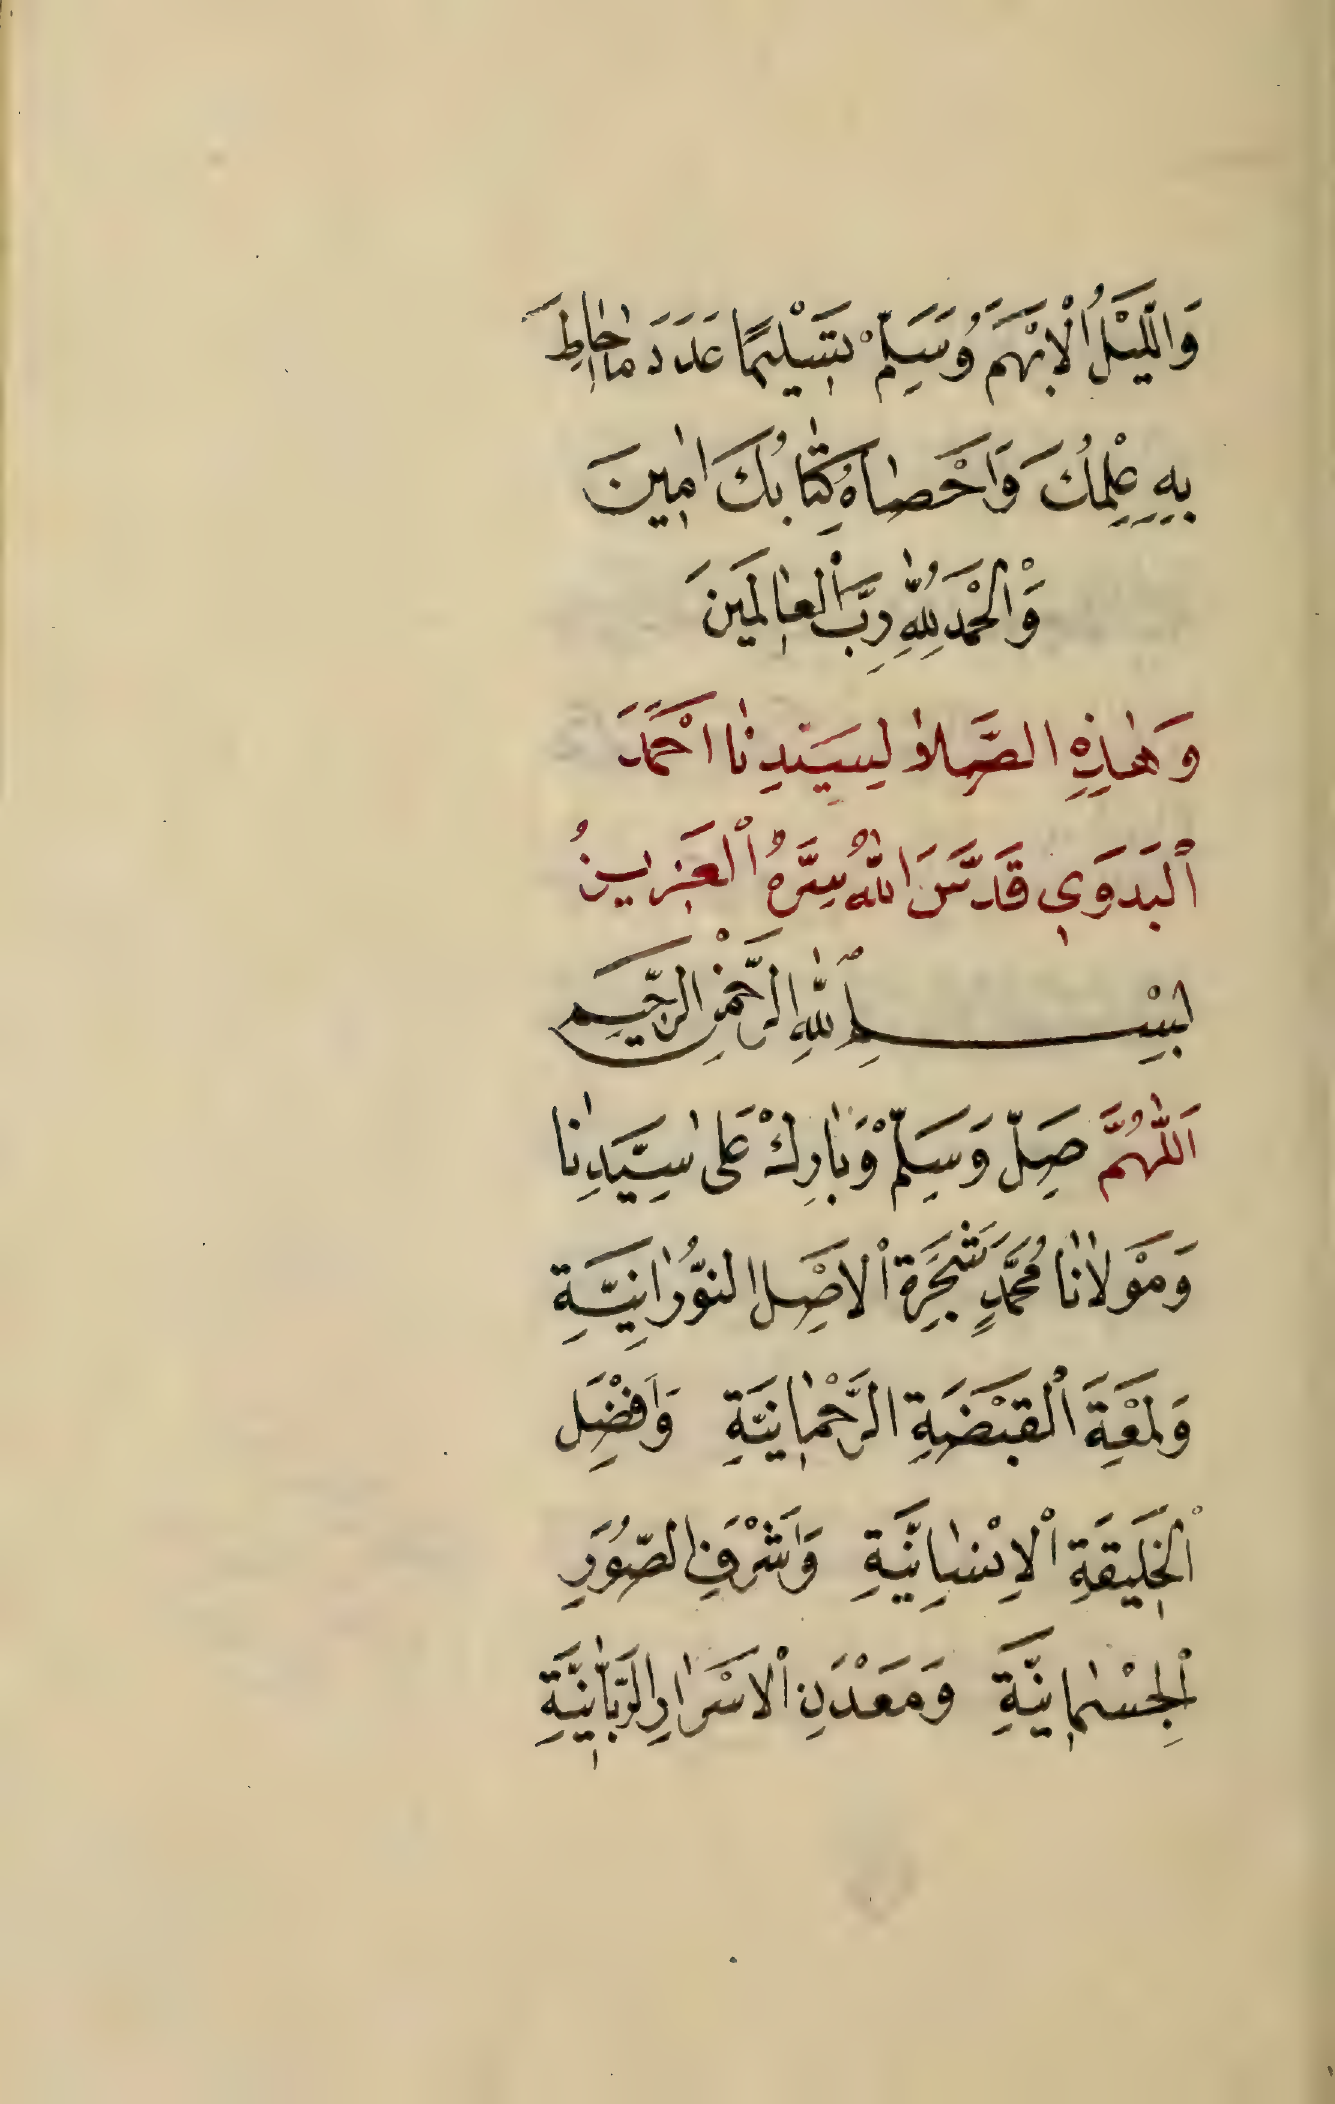 وَالَّيْلُ الْاِبْهَمَ وَسَلِّمْ تَسْلِيمًا عَدَدَ مٰا حٰاطَ
بِهِ عِلْمُكَ وَاَحْصٰاهُ كِتٰابُكَ اٰمِينَ
وَالْحَمْدُ لِلّٰهِ رَبِّ الْعٰالَمِينَ
وَهٰذِهِ الصَّلاٰ لِسَيِّدِنٰا اَحْمَدَ
اَلْبَدَوِي قَدَّسَ اللّٰهُ سِرَّهُ الْعَزِيزُ
بِسْمِ اللّٰهِ الرَّحْمٰنِ الرَّحِيمِ
اَللّٰهُمَّ صَلِّ وَسَلِّمْ وَبٰارِكْ عَلٰى سَيِّدِنٰا
وَمَوْلاٰنٰا مُحَمَّدٍ شَجَرَةِ الْاَصْلِ النُّورٰانِيَّةِ
وَلَمْعَةَ الْقَبْضَةِ الرَّحْمٰانِيَّةِ وَاَفْضَلِ
الْخَلِيقَةِ الْاِنْسٰانِيَّةِ وَاَشْرَفِ الصُّوَرِ
الْجِسْمٰانِيَّةِ وَمَعْدَنِ الْاَسْرٰارِ الرَّبّٰانِيَّةِ